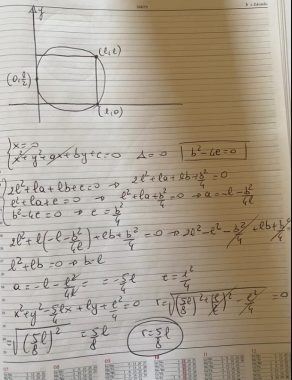 y
(l,l)
(0,l/2)
(l,0)
x=0
x²+y²+ax+by+c=0 Δ=0 b²-4c=0
2l²+la+lb+c=0 → 2l²+la+lb+b²/4=0
l²+la+c=0 → l²+la+b²/4=0 → a=-l-b²/4l
b²-4c=0 → c=b²/4
2l²+l(-l-b²/4l)+lb+b²/4=0 → 2l²-l²-b²/4+lb+b²/4=0
l²+lb=0 → b=-l
a=-l-l²/4l = -5/4l c=l²/4
x²+y²-5/4lx+ly+l²/4=0 r=√(5/8l)²+(l/2)²-l²/4 =0
=√(5/8l)² =5/8l r=5/8l